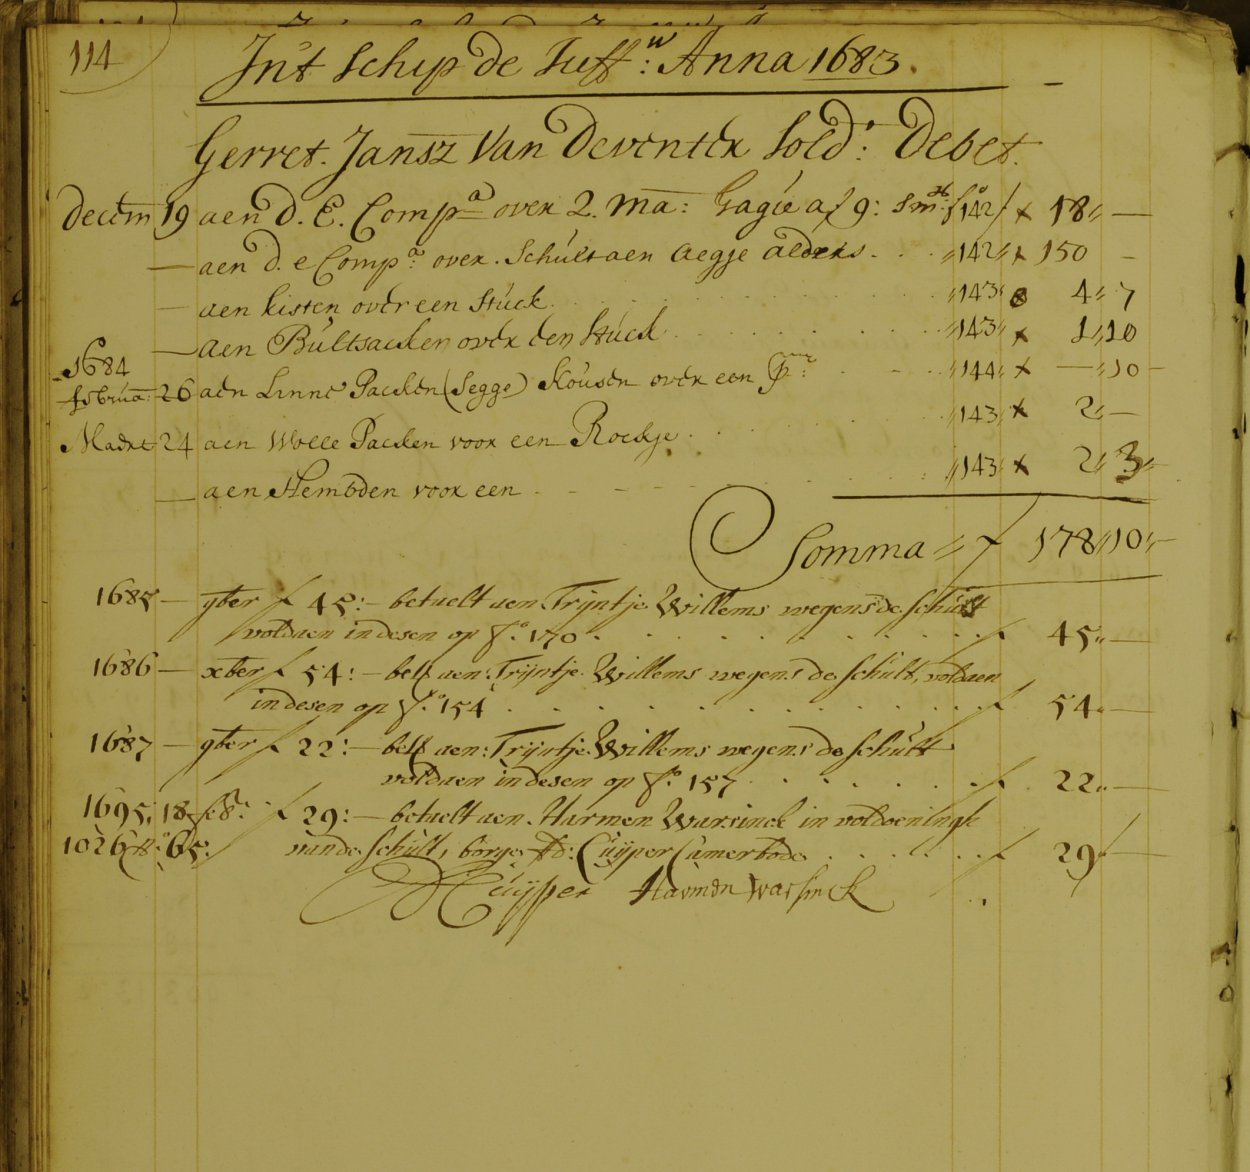 114
Int Schip de Juffw: Anna 1683.
Gerret. Jansz Van Deventer Sold: Debet.
Decem 19 aen d. E. Compa over 2. ma: Gagie a f 9: smH: fo 142 / x 18 „ —
— aen d. e Compa over. Schult aen Aegje Alders . . . „ 142 „ x 150 —
— aen kisten over een Stuck . . . „ 143 „ 4 „ 7
— aen Bultsacken over een Stuck . . . „ 143 „ x 1 „ 10
1684
februa: 26 aen Linne Packen (Segge) Kousen over een Pr: . . . „ 144 „ x — „ 10 —
Maert 24 aen Wolle Packen voor een Rockje . . . „ 143 „ x 2 „ —
— aen Hembden voor een . . . „ 143 „ x 2 „ 3 „
Somma „ f 178 „ 10 „ —
1685 — 9ber f 45: — betaelt aen Trijntje Willems wegens de schult
voldaen in desen op fo. 170 . . . f 45 „ —
1686 — xber f 54: — belt aen: Trijntje Willems wegens de schult, voldaen
in desen op fo. 154 . . . f 54 „ —
1687 — 9ber f 22: — belt aen: Trijntje Willems wegens de schult
voldaen in desen op fo. 157 . . . f 22 „ —
1695, 18 f 29: — betaelt aen Harmen Warsinck in voldoeningh
1026 65: vande schult, borge Ad: Cuijper Camerbode . . . f 29 —
Cuijper Harmen Warsinck